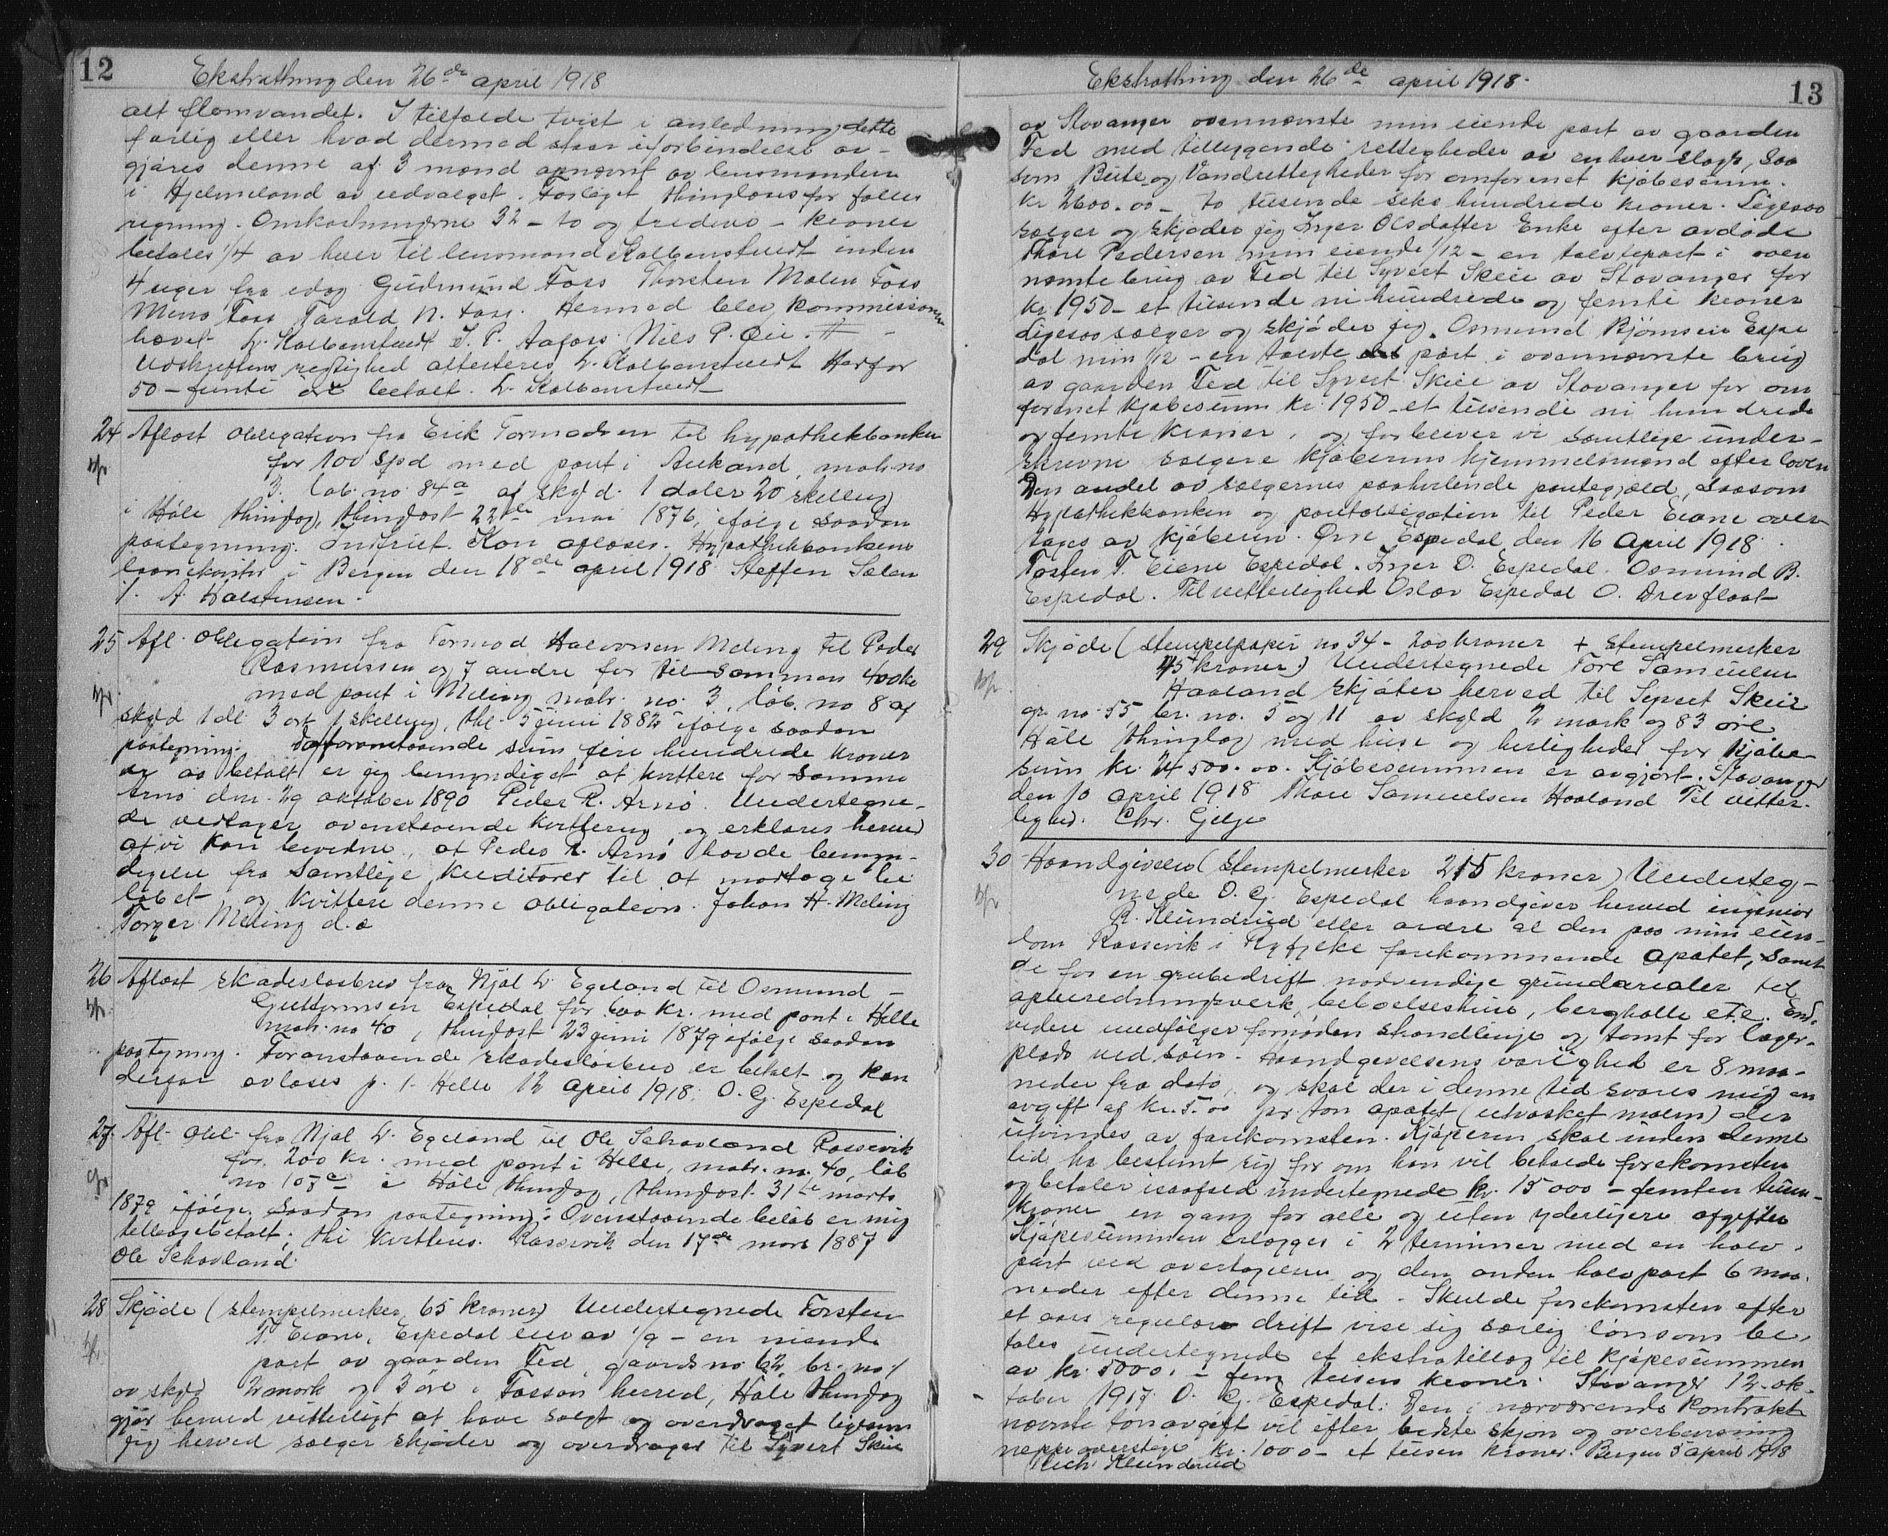 12
Ekstrathing den 26de april 1918
alt flomvandet. I tilfælde tvist i anledning dette
farlig eller hvad dermed staar i forbindelse av-
gjøres denne af 3 mænd opnævnt av lensmanden
i Hjelmeland av utvalget. Forliget thinglæses for fælles
regning. Omkostningerne 32 - to og tredive - kroner
betales 1/4 av hver til lensmand Kolbenstvedt inden
4 uger fra idag Gudmund Foss Thorsten Malen Foss
Mons Foss Tarald N. Foss. Hermed blev kommissionen
hævet L. Kolbenstvedt T. P. Aafors Nils P. Øie.
Udskriftens rigtighed attesteres L. Kolbenstvedt Herfor
50 - femti øre betalt. L. Kolbenstvedt
24 Aflæst obligation fra Erik Tormodsen til hypothekbanken
for 100 spd med pant i Aukand, matr. no
3 løb. no 84a af skyld 1 daler 20 skelling
i Håle thinglag, thinglæst 22de mai 1876, ifølge saadan
paategning. Indfriet. Kan aflæses. Hypothekbankens
laanekontor i Bergen den 18de april 1918 Steffen Sælen
/. A Halstensen.
25 Afl. obligation fra Tormod Halvorsen Meling til Peder
Rasmussen og 7 andre for tilsammen 400 kr
med pant i Meling matr. no. 3, løb. no 8 af
skyld 1 dl. 3 ort 1 skelling, thl. 5 juni 1882 ifølge saadan
paategning. Da foranstaaende sum fire hundrede kroner
er os betalt er jeg bemyndiget at kvittere for samme
Arnø den 29 oktober 1890 Peder R. Arnø. Undertegne-
de vedtager ovenstaaende kvittering og erklæres herved
at vi kan bevidne, at Peder R. Arnø havde bemyn-
digelse fra samtlige kreditorer til at mottage be-
løbet og kvittere denne obligation. Johan H. Meling
Torger Meling d.æ
26 Aflæst skadesløsbrev fra Njal L. Egeland til Osmund
Guttormsen Espedal for 600 kr. med pant i Helle
matr. no 40, thinglæst 23 juni 1879 ifølge saadan
paategning. Foranstaaende skadesløsbrev er betalt og kan
derfor avlæses p. t. Helle 12 april 1918. O. G. Espedal
27 Afl. obl. fra Njal L. Egeland til Ole Schovland Rossevik
for 200 kr. med pant i Helle, matr. no. 40, løb
no 105a i Håle thinglag, thinglæst 31te marts
1879 ifølge saadan paategning: Ovenstaaende beløb er mig
tilbagebetalt, thi kvitteres. Rossevik den 17de mars 1887
Ole Schovland
28 Skjøde (stempelmerker 65 kroner) Undertegnede Torsten
T. Eiane, Espedal eier av 1/9 - en niende
part av gaarden Ted, gaards no 62, br. no. 1
av skyld 2 mark og 3 øre i Fossan herred, Håle thinglag
gjør herved vitterligt at have solgt og overdraget ligesom
jeg herved sælger skjøder og overdrager til Syvert Skeie
13
Ekstrathing den 26de april 1918.
av Stavanger ovennævnte min eiende part av gaarden
Ted med tilliggende rettigheder av enhver slags, saa
som Beite- og Vandrettigheder for omforenet kjøbesum.
kr 2600.00 - to tusende seks hundrede kroner. Ligesaa
sælger og skjøder jeg Inger Olsdatter Enke efter avdøde
Thore Pedersen min eiende 1/12 - en tolvtepart i oven
nævnte brug av Ted til Syvert Skeie av Stavanger for
kr 1950 - et tusende ni hundrede og femti kroner
Ligesaa sælger og skjøder jeg Osmund Bjørnsen Espe
dal min 1/12 - en tolvte part i ovennævnte brug
av gaarden Ted til Syvert Skeie av Stavanger for om
forenet kjøbesum kr. 1950 - et tusende ni hundrede
og femti kroner, og forbliver vi samtlige under-
skrevne sælgere kjøberens hjemmelsmænd efter loven
Den andel av sælgernes paahvilende pantegjæld, saasom
Hypothekbanken og pantobligation til Peder Eiane over
tages av kjøberen. Øvre Espedal den 16 april 1918.
Tosten T. Eiene Espedal. Inger O. Espedal. Osmund B.
Espedal. Til vitterlighed Oslov Espedal O. Drevfloat
29 Skjøde (stempelpapir no 34 - 200 kroner + stempelmerker
45 kroner) Undertegnede Tore Samuelsen
Haaland skjøter herved til Syvert Skeie
gr. no. 55, br. no. 5 og 11 av skyld 2 mark og 83 øre
Håle thinglag med huse og herligheder for kjøbe
sum kr. 24500.00. Kjøbesummen er avgjort. Stavanger
den 10 april 1918 Thore Samuelsen Haaland Til vitter-
lighed. Chr. Gilje
30 Haandgivelse (stempelmerker 215 kroner) Underteg-
nede O. G. Espedal haandgiver herved ingeniør
R. Klundrud eller ordre al den paa min eien-
dom Rossevik i Ryfylke forekommende apatet, samt
de for en grubedrift nødvendige grundarealer til
opberedningsverk, beboelseshus, berghalle etc. End-
videre medfølger fornøden strandlinje og tomt for lager-
plads ved søen. Haandgivelsens varighed er 8 maa-
neder fra dato, og skal der i denne tid svares mig en
avgift af kr. 5.00 pr. ton apatet (utvasket malm) der
utvindes av forekomsten. Kjøperen skal inden denne
tid ha bestemt sig for om han vil beholde forekomsten
og betaler isaafald undertegnede kr. 15000 - femten tusen
kroner en gang for alle og uten yderligere afgifter
Kjøpesummen erlægges i 2 terminer med en halv-
part ved overtagelsen og den anden halvpart 6 maa-
neder efter denne tid. Skulde forekomsten efter
et aars regulær drift vise sig særlig lønsom be-
tales undertegnede et ekstratillæg til kjøpesummen
av kr. 5000.- fem tusen kroner. Stavanger 12 ok-
tober 1917. O. G. Espedal. Den i nærværende kontrakt
nævnte tonavgift vil efter bedste skjøn og overbevisning
neppe overstige kr. 1000 - et tusen kroner. Bergen 5 april 1918
Rich. Klunderud